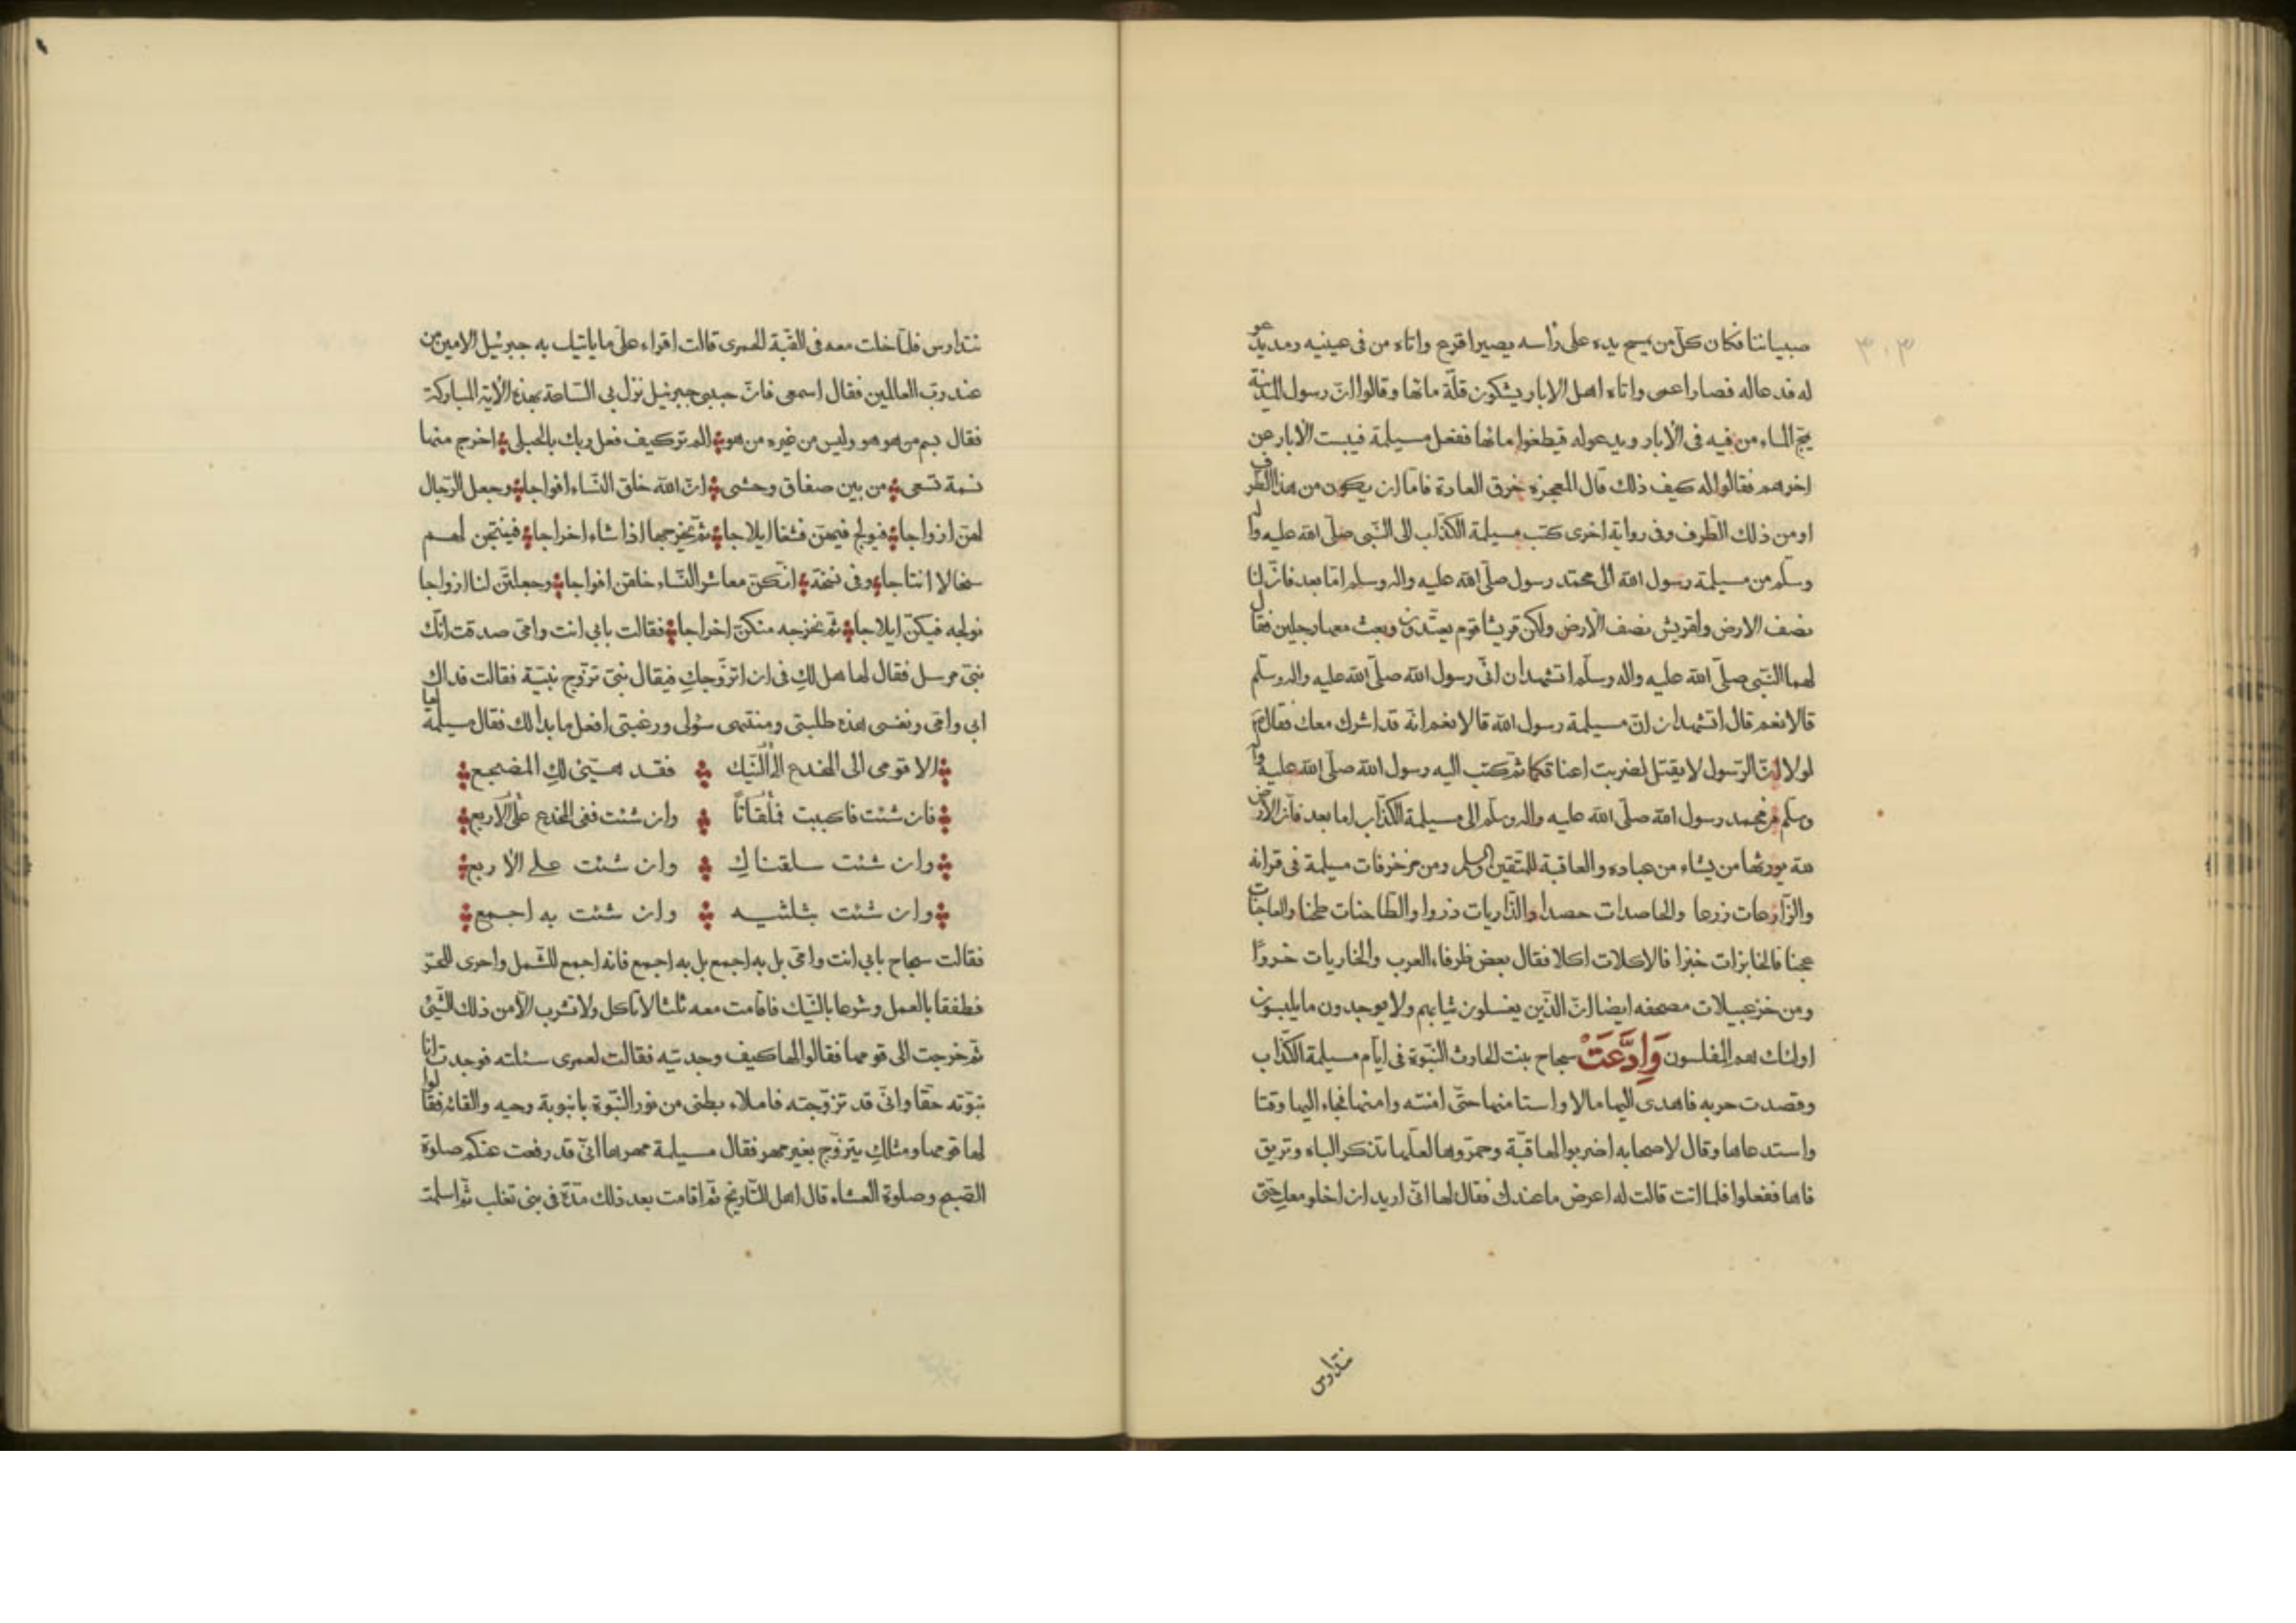 ٣٠٣
صبياننا فكان كلّ من يمسح يده على رأسه يصير اقرع واتاه من فى عينيه رمد يدعو
له فدعا له فصار اعمى واتاه اهل الابار يشكون قلّة مائها وقالوا انّ رسول المدينة
يمجّ الماء من فيه فى الابار ويدعو له فيطغوا مائها ففعل مسيلمة فيبست الابار عن
اخرهم فقالوا له كيف ذلك قال المعجزه خرق العادة فامّا ان يكون من هذا الطرف
او من ذلك الطرف وفى رواية اخرى كتب مسيلمة الكذّاب الى النّبى صلّى الله عليه وا ل
وسلّم من مسيلمة رسول الله الى محمّد رسول صلّى الله عليه واله وسلم امّا بعد فانّ لنا
نصف الارض ولقريش نصف الارض ولكن قريشا قوم يعتدون وبعث معها رجلين فقال
لهما النّبى صلّى الله عليه واله وسلّم اتشهدان انّى رسول الله صلّى الله عليه واله وسلّم
قالا نعم قال اتشهدان انّ مسيلمة رسول الله قالا نعم انّه قد اشرك معك فقال
لولا انّ الرّسول لا يقتل لضربت اعناقكما ثمّ كتب اليه رسول الله صلّى الله عليه وآ
وسلّم من محمد رسول الله صلّى الله عليه واله وسلّم الى مسيلمة الكذّاب اما بعد فانّ الارض
لله يورثها من يشاء من عباده والعاقبة للمتّقين والسلم ومن مزخرفات مسيلمة فى قرانه
والزّارعات زرعا والحاصدات حصدا والذّاريات ذروا والطّاحنات طحنا والعاجنات
عجنا فالخابزات خبزا فالاكلات اكلا فقال بعض ظرفاء العرب والخاريات خروًا
ومن خزعبيلات مصحفه ايضا انّ الذّين يغسلون ثيابهم ولا يوجدون ما يلبسون
اولئك هم المفلسون وَادَّعَتْ سجاح بنت الحارث النّبوّة فى ايّام مسيلمة الكذّاب
وقصدت حربه فاهدى اليها مالا واستامنها حتّى امنته وامنها فجاء اليها وقتا
واستدعاها وقال لاصحابه اضربوا لها قبّة وحمّروها لعلّها تذكر الباه وتريق
فاها ففعلوا فلما اتت قالت له اعرض ما عندك فقال لها انّى اريد ان اخلو معكِ حتّى
نتدارس
نتدارس فلمّا خلت معه فى القّبة الحمرى قالت اقراء علىّ ما ياتيك به جبرئيل الامين من
عند ربّ العالمين فقال اسمعى فانّ حبيبى جبرئيل نزل بى السّاعة بهذه الاية المباركة
فقال بسم من هو هو وليس من غيره من هو الم تر كيف فعل ربك بالحبلى اخرج منها
نسمة تسعى من بين صفاق وحشى انّ الله خلق النّساء افواجا وجعل الرّجال
لهنّ ازواجا فيولج فيهنّ قعسا ايلاجا ثمّ يخرجها اذا شاء اخراجا فينتجن لهم
سخالا انتاجا وفى نسخة انّكنّ معاشر النّساء خلقن افواجا وجعلتنّ لنا ازواجا
نولجه فيكنّ ايلاجا ثمّ نخرجه منكنّ اخراجا فقالت بابى انت وامّى صدقت انّك
نبىّ مرسل فقال لها هل لكِ فى ان اتزوّجكِ فيقال نبىّ تزوّج نبيّة فقالت فداك
ابى وامّى ونفسى هذه طلبتى ومنتهى سؤلى ورغبتى افعل ما بدا لك فقال مسيلمة لها
الا قومى الى المخدع الى النّيك فقد هيّئ لكِ المضجع
فان شئت فاكببت وان شئت ففى المخدع على الاربع
وان شئت سلقناكِ وان شئت على الاربع
وان شئت بثلثيه وان شئت به اجمع
فقالت سجاح بابى انت وامّى بل به اجمع بل به اجمع فانه اجمع للشّمل واحرى للحرّ
فطفقا بالعمل وشرعا بالنّيك فاقامت معه ثلثا لا تاكل ولا تشرب الّا من ذلك الشّئ
ثمّ خرجت الى قومها فقالوا لها كيف وجدتيه فقالت لعمرى سئلته فوجدت انا
نبوّته حقّا وانّى قد تزوّجته فاملاء بطنى من نور النّبوّة بانبوبة وحيه والقائه فقالوا
لها قومها ومثلكِ يتزوّج بغير مهر فقال مسيلمة مهرها انّى قد رفعت عنكم صلوة
الصّبح وصلوة العشاء قال اهل التّاريخ ثمّ اقامت بعد ذلك مدّة فى بنى تغلب ثمّ اسلمت